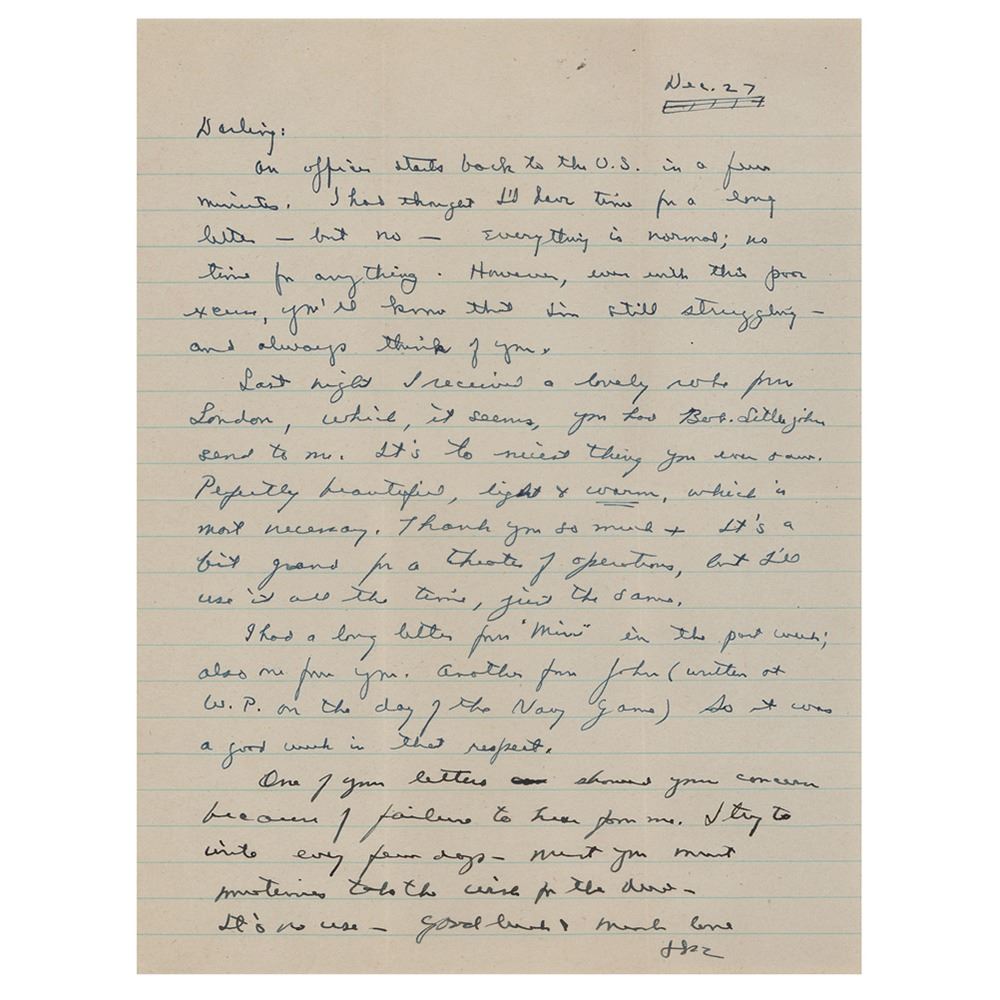 Dec. 27
Darling:
An officer starts back to the U.S. in a few
minutes. I had thought I'd have time for a long
letter — but no — Everything is normal; no
time for anything. However, even with this poor
excuse, you'll know that I'm still struggling —
and always think of you.
Last night I received a lovely robe from
London, which, it seems, you had Bob. Littlejohn
send to me. It's to nicest thing you ever saw.
Perfectly beautiful, light & warm, which is
most necessary. Thank you so much + It's a
bit grand for a theater of operations, but I'll
use it all the time, just the same.
I had a long letter from "Min" in the past week;
also one from you. Another from John (written at
W. P. on the day of the Navy Game) So it was
a good week in that respect.
One of your letters showed your concern
because of failure to hear from me. I try to
write every few days — must you must
sometimes take the wish for the deed —
It's no use — Good luck & much love